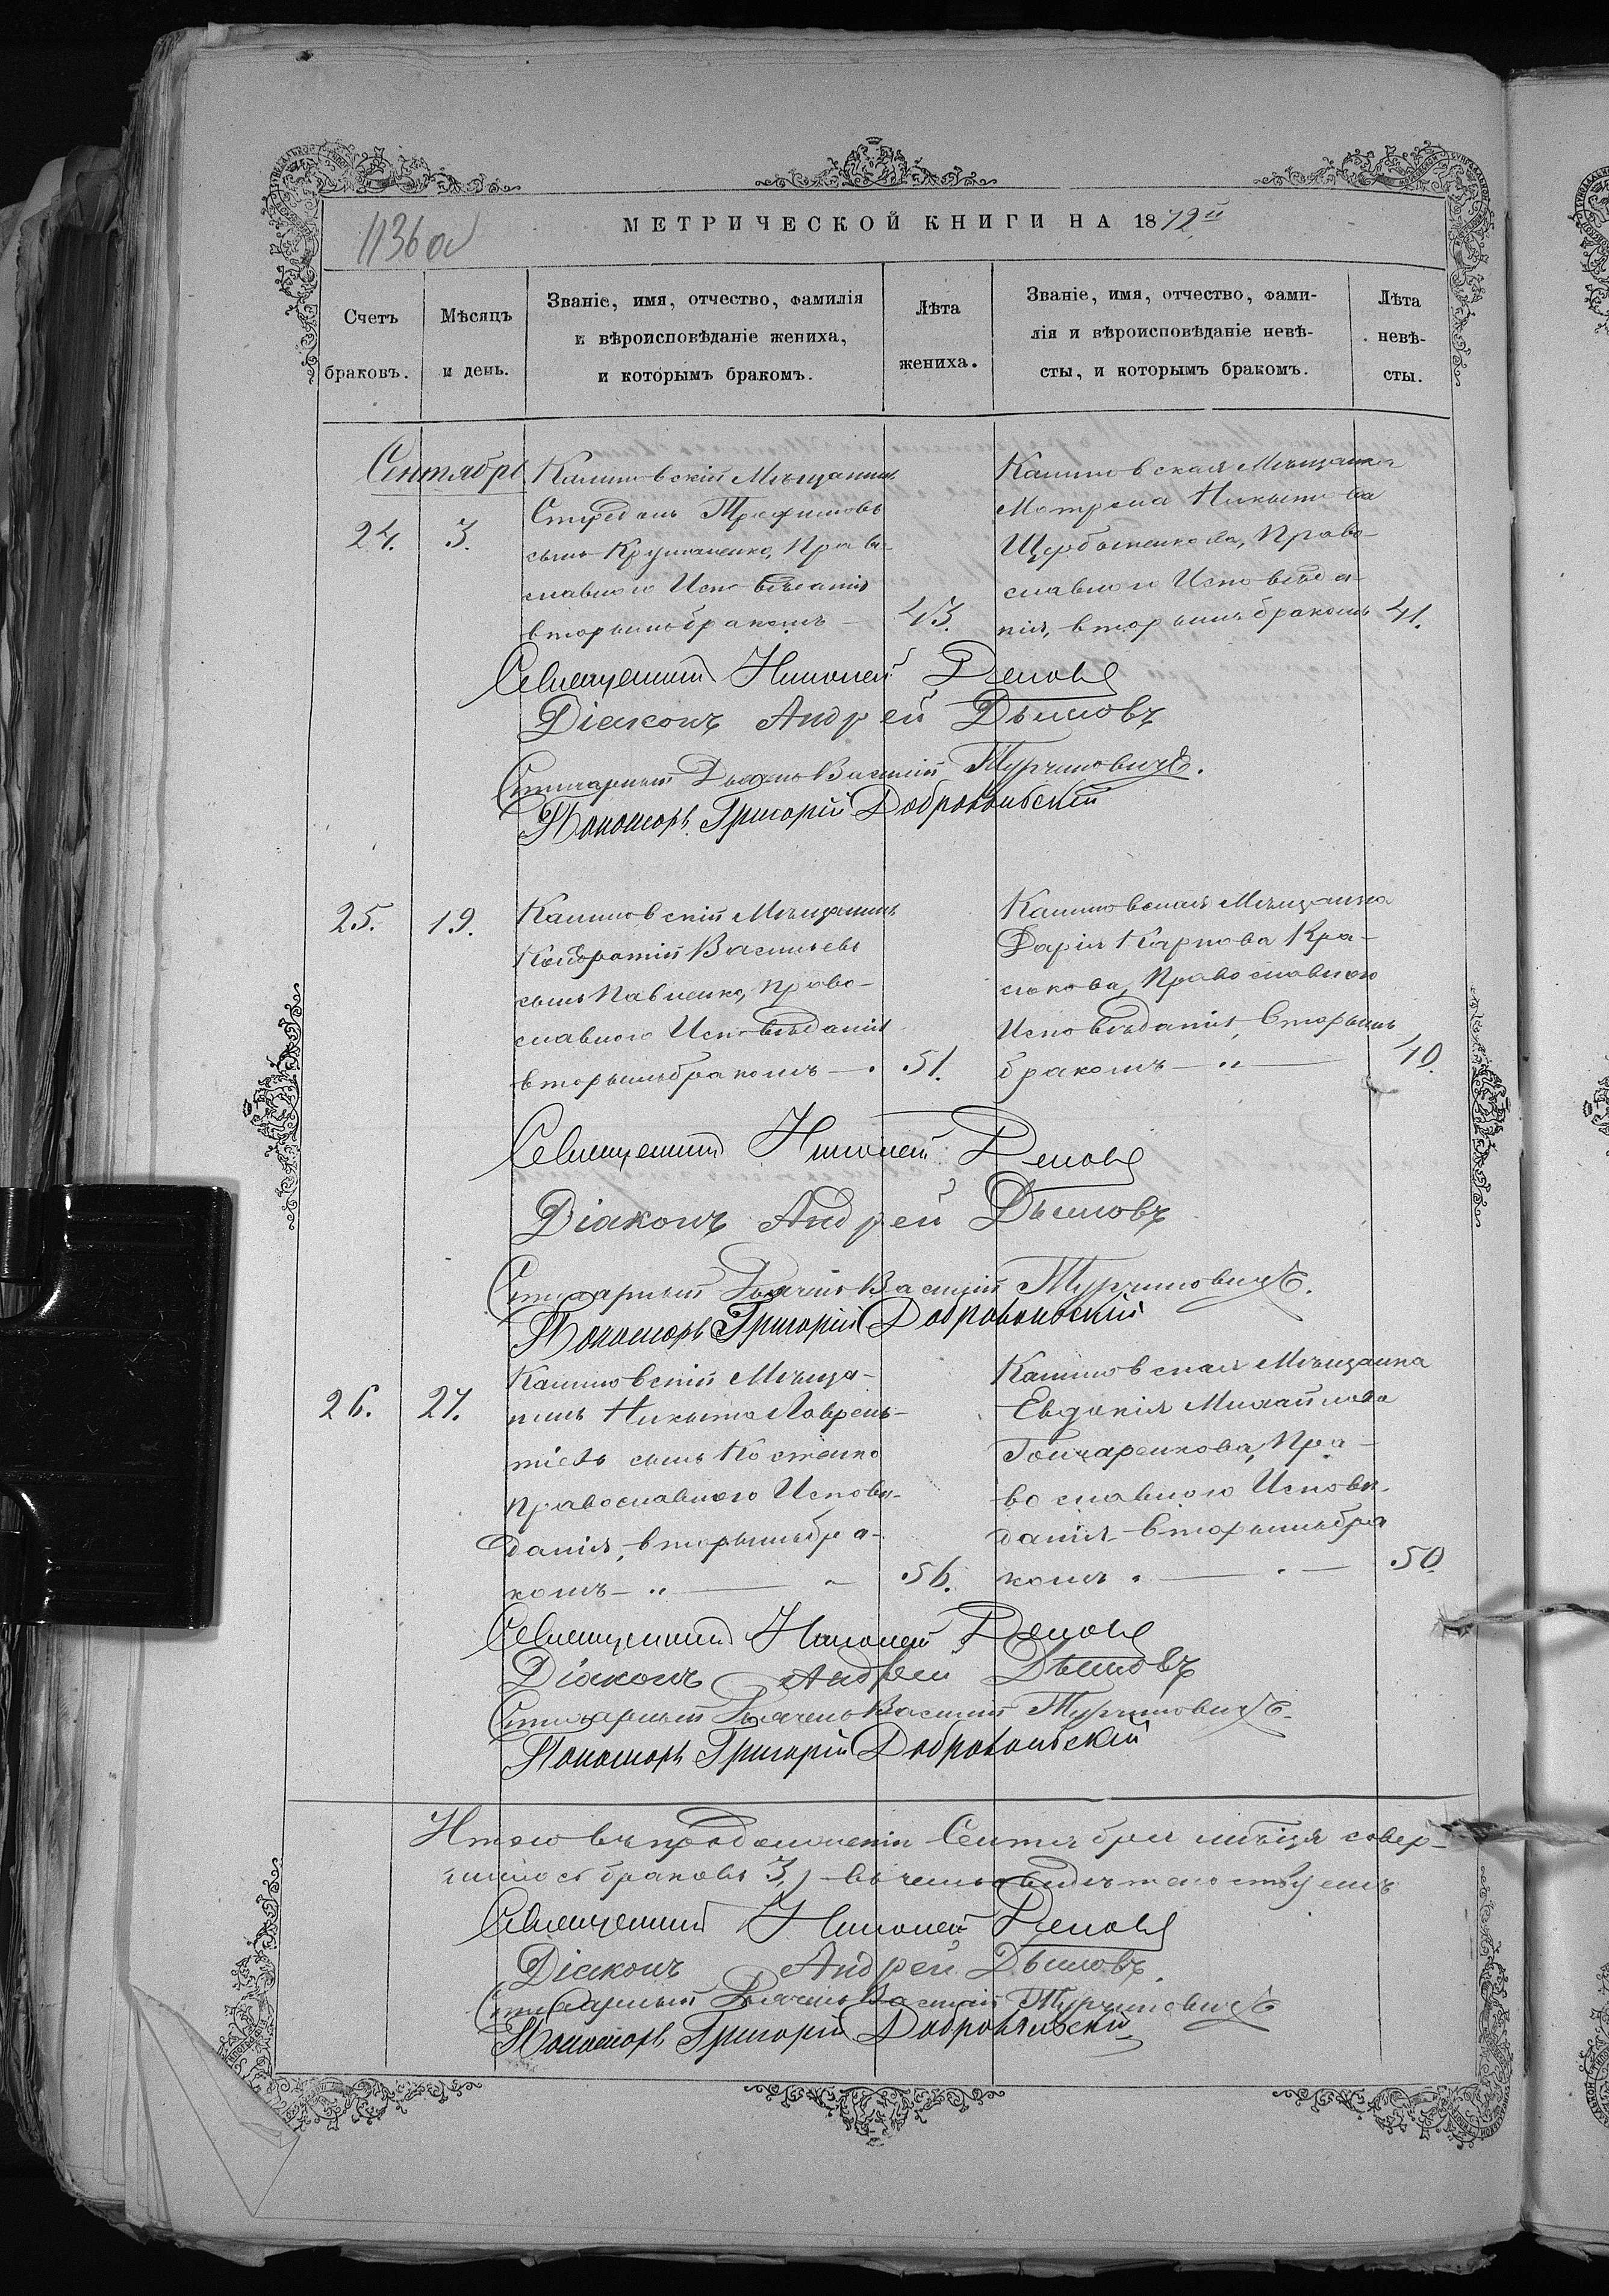 1136 об
МЕТРИЧЕСКОЙ КНИГИ НА 1872й
Счетъ браковъ.
Мѣсяцъ и день.
Званіе, имя, отчество, фамилія
и вѣроисповѣданіе жениха,
и которымъ бракомъ.
Лѣта жениха.
Званіе, имя, отчество, фами-
лія и вѣроисповѣданіе невѣ-
сты, и которымъ бракомъ.
Лѣта невѣ-
сты.
Сентябрь
24.
3.
Мѣщанинъ
Трофимовъ
сынъ Право-
славного Исповѣданія
вторымъ бракомъ
43.
Мѣщанка
Мотрона Никитова
Щербаненкова, Право-
славного Исповѣда-
нія, вторымъ бракомъ
41.
Священникъ Николай
Діаконъ Андрей Дьяковъ
Стихарный Дьячекъ Василій Турчиновичъ.
Пономарь Григорій Добровольскій
25.
19.
Мѣщанинъ
Кондратій Васильевъ
сынъ Павленко, Право-
славного Исповѣданія
вторымъ бракомъ
51.
Мѣщанка
Дарія Карпова Кра-
Православного
Исповѣданія, вторымъ
бракомъ
40.
Священникъ Николай
Діаконъ Андрей Дьяковъ
Стихарный Дьячекъ Василій Турчиновичъ.
Пономарь Григорій Добровольскій
26.
27.
Мѣща-
нинъ Никита Лаврень-
тіевъ сынъ Костенко
Православного Исповѣ-
данія, вторымъ бра-
комъ
56.
Мѣщанка
Евдокія Михайлова
Гончаренкова, Пра-
вославного Исповѣ-
данія вторымъ бра
комъ
50.
Священникъ Николай
Діаконъ Андрей Дьяковъ
Стихарный Дьячекъ Василій Турчиновичъ.
Пономарь Григорій Добровольскій
Итого въ продолженіи Сентября мѣсяца совер-
шилось браковъ 3, въ чемъ и свидѣтельствуемъ
Священникъ Николай
Діаконъ Андрей Дьяковъ.
Стихарный Дьячекъ Василій Турчиновичъ
Пономарь Григорій Добровольскій